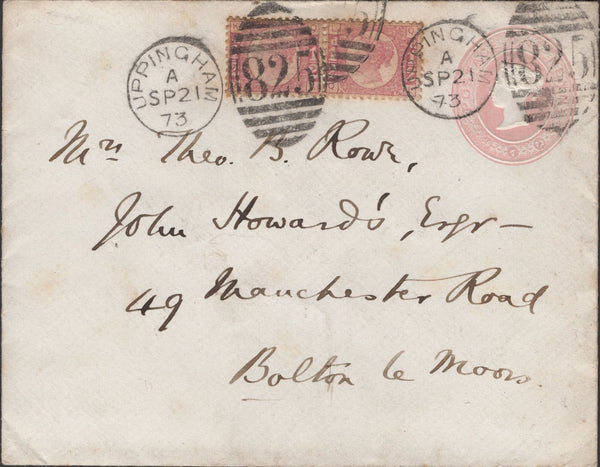 UPPINGHAM
A
SP21
73
825
UPPINGHAM
A
SP21
73
825
Mrs Theo. B. Rowe,
John Howard's, Esqr—
49 Manchester Road
Bolton le Moors.